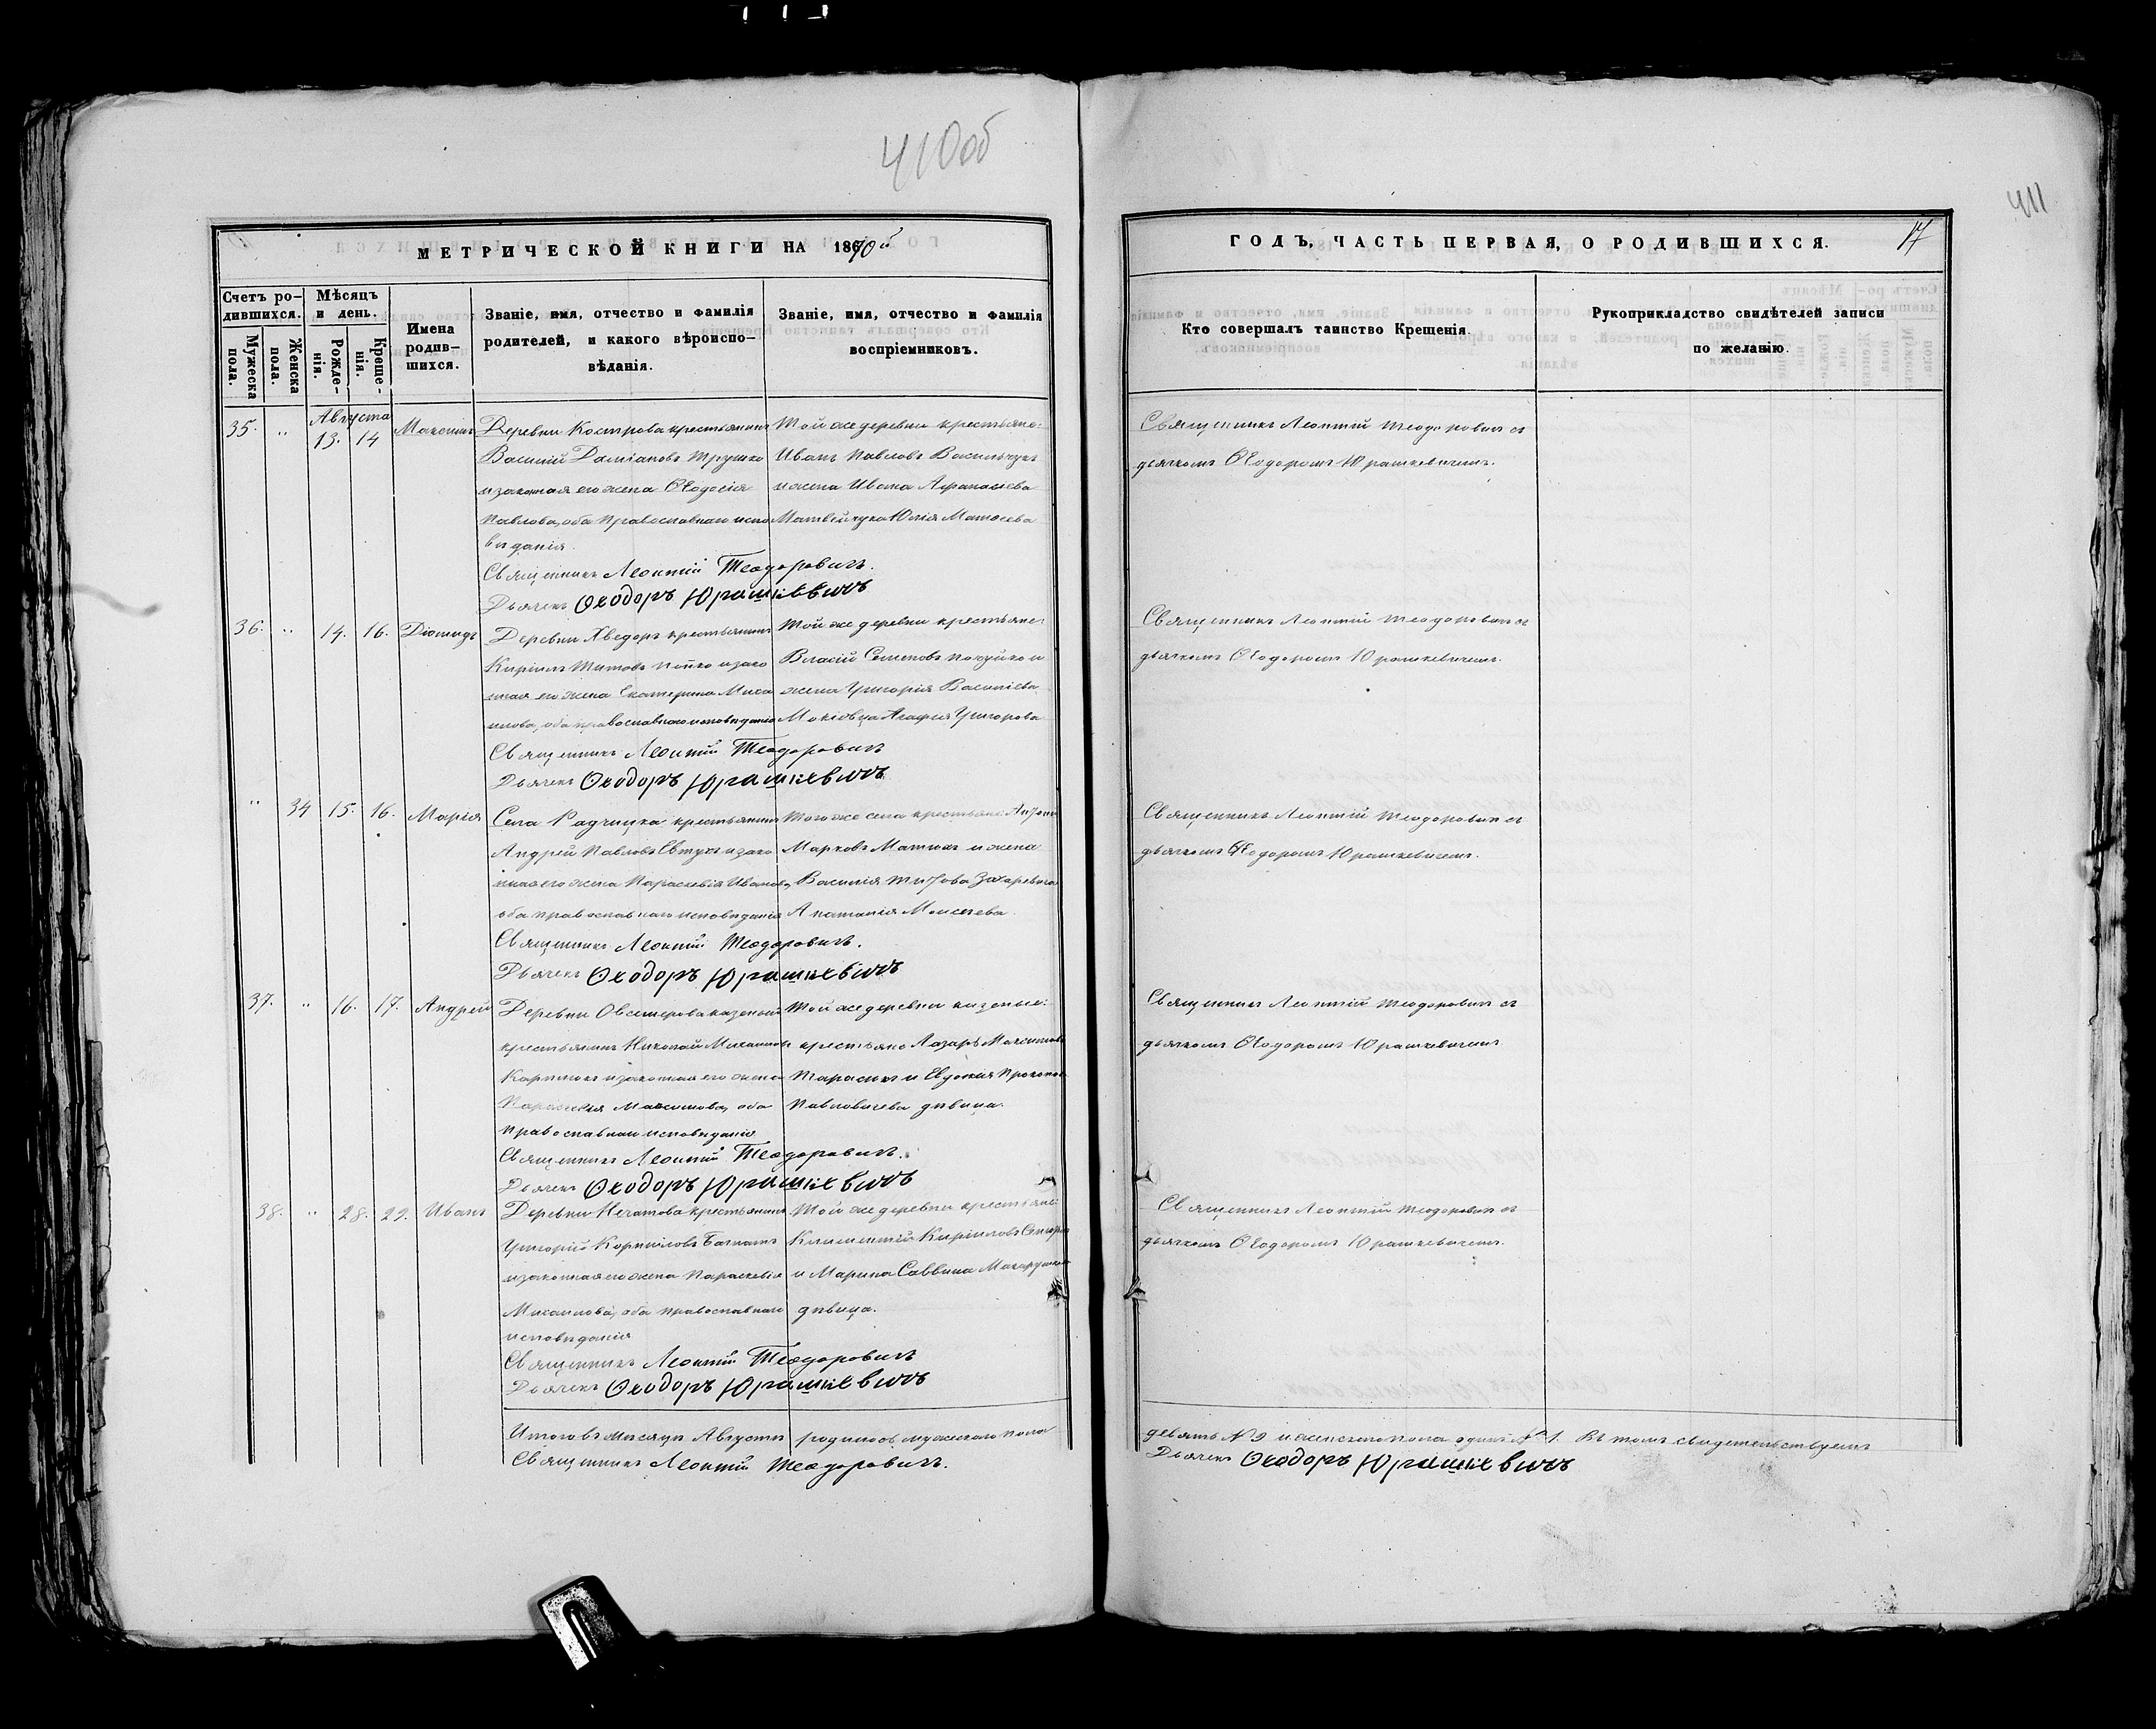 410об
411
МЕТРИЧЕСКОЙ КНИГИ НА 1870й
Счетъ ро-
дившихся.
Мужеска пола.
Женска пола.
Мѣсяцъ и день.
Рожде-
нія.
Креще-
нія.
Имена
родив-
шихся.
Званіе, имя, отчество и фамилія
родителей, и какого вѣроиспо-
вѣданія.
Званіе, имя, отчество и фамилія
воспріемниковъ.
Августа
35. " 13. 14 Максимъ
Деревни Кострова крестьянинъ
Василій Даміановъ Трушко
и законная его жена Ѳеодосія
Павлова, оба православнаго испо
вѣданія.
Той же деревни крестьяне:
Иванъ Павловъ Васильчукъ
и жена Ивана Афанасіева
Матвейчука Юлія Матѳеева
Священникъ Леонтій Теодоровичъ.
Дьячекъ Ѳеодоръ Юрашкевичъ
36. " 14. 16. Діомидъ
Деревни Хведоръ крестьянинъ
Кирилъ Титовъ и зако
нная его жена Екатерина Миха
илова, оба православнаго исповѣданія
Той же деревни крестьяне:
Власій Семеновъ и
жена Григорія Василіева
Агафія Григорова
Священникъ Леонтій Теодоровичъ
Дьячекъ Ѳеодоръ Юрашкевичъ
" 34 15. 16. Марія
Села Радчицка крестьянинъ
Андрей Павловъ Евтухъ и зако
нная его жена Параскевія Иванова,
оба православнаго исповѣданія
Того же села крестьяне: Антонъ
Марковъ Матюкъ и жена
Василія Титова Захаревича
Анатолія Моисеева.
Священникъ Леонтій Теодоровичъ.
Дьячекъ Ѳеодоръ Юрашкевичъ
37. " 16. 17. Андрей
Деревни Овсемерова казеный
крестьянинъ Николай Михаиловъ
Карпюкъ и законная его жена
Параскевія Максимова, оба
православнаго исповѣданія
Той же деревни казеные:
крестьяне Лазарь Максимовъ
Тарасюкъ и Евдокія Прокопова
Павловичева дѣвица.
Священникъ Леонтій Теодоровичъ.
Дьячекъ Ѳеодоръ Юрашкевичъ
38. " 28. 29. Иванъ
Деревни Нечатова крестьянинъ
Григорій Корниловъ
и законная его жена Параскевія
Михаилова, оба православнаго
исповѣданія
Той же деревни крестьяне:
Климентій Кириловъ
и Марина Саввина
дѣвица.
Священникъ Леонтій Теодоровичъ
Дьячекъ Ѳеодоръ Юрашкевичъ
Итого въ мѣсяцѣ Августѣ родилось мужескаго пола
Священникъ Леонтій Теодоровичъ.
ГОДЪ, ЧАСТЬ ПЕРВАЯ, О РОДИВШИХСЯ.
17
Кто совершалъ таинство Крещенія.
Рукоприкладство свидѣтелей записи
по желанію.
Священникъ Леонтій Теодоровичъ съ
дьячкомъ Ѳеодоромъ Юрашкевичемъ.
Священникъ Леонтій Теодоровичъ съ
дьячкомъ Ѳеодоромъ Юрашкевичемъ.
Священникъ Леонтій Теодоровичъ съ
дьячкомъ Ѳеодоромъ Юрашкевичемъ.
Священникъ Леонтій Теодоровичъ съ
дьячкомъ Ѳеодоромъ Юрашкевичемъ
Священникъ Леонтій Теодоровичъ съ
дьячкомъ Ѳеодоромъ Юрашкевичемъ.
девять № 9 и женскаго пола одинъ № 1. Въ томъ свидетельствуемъ
Дьячекъ Ѳеодоръ Юрашкевичъ